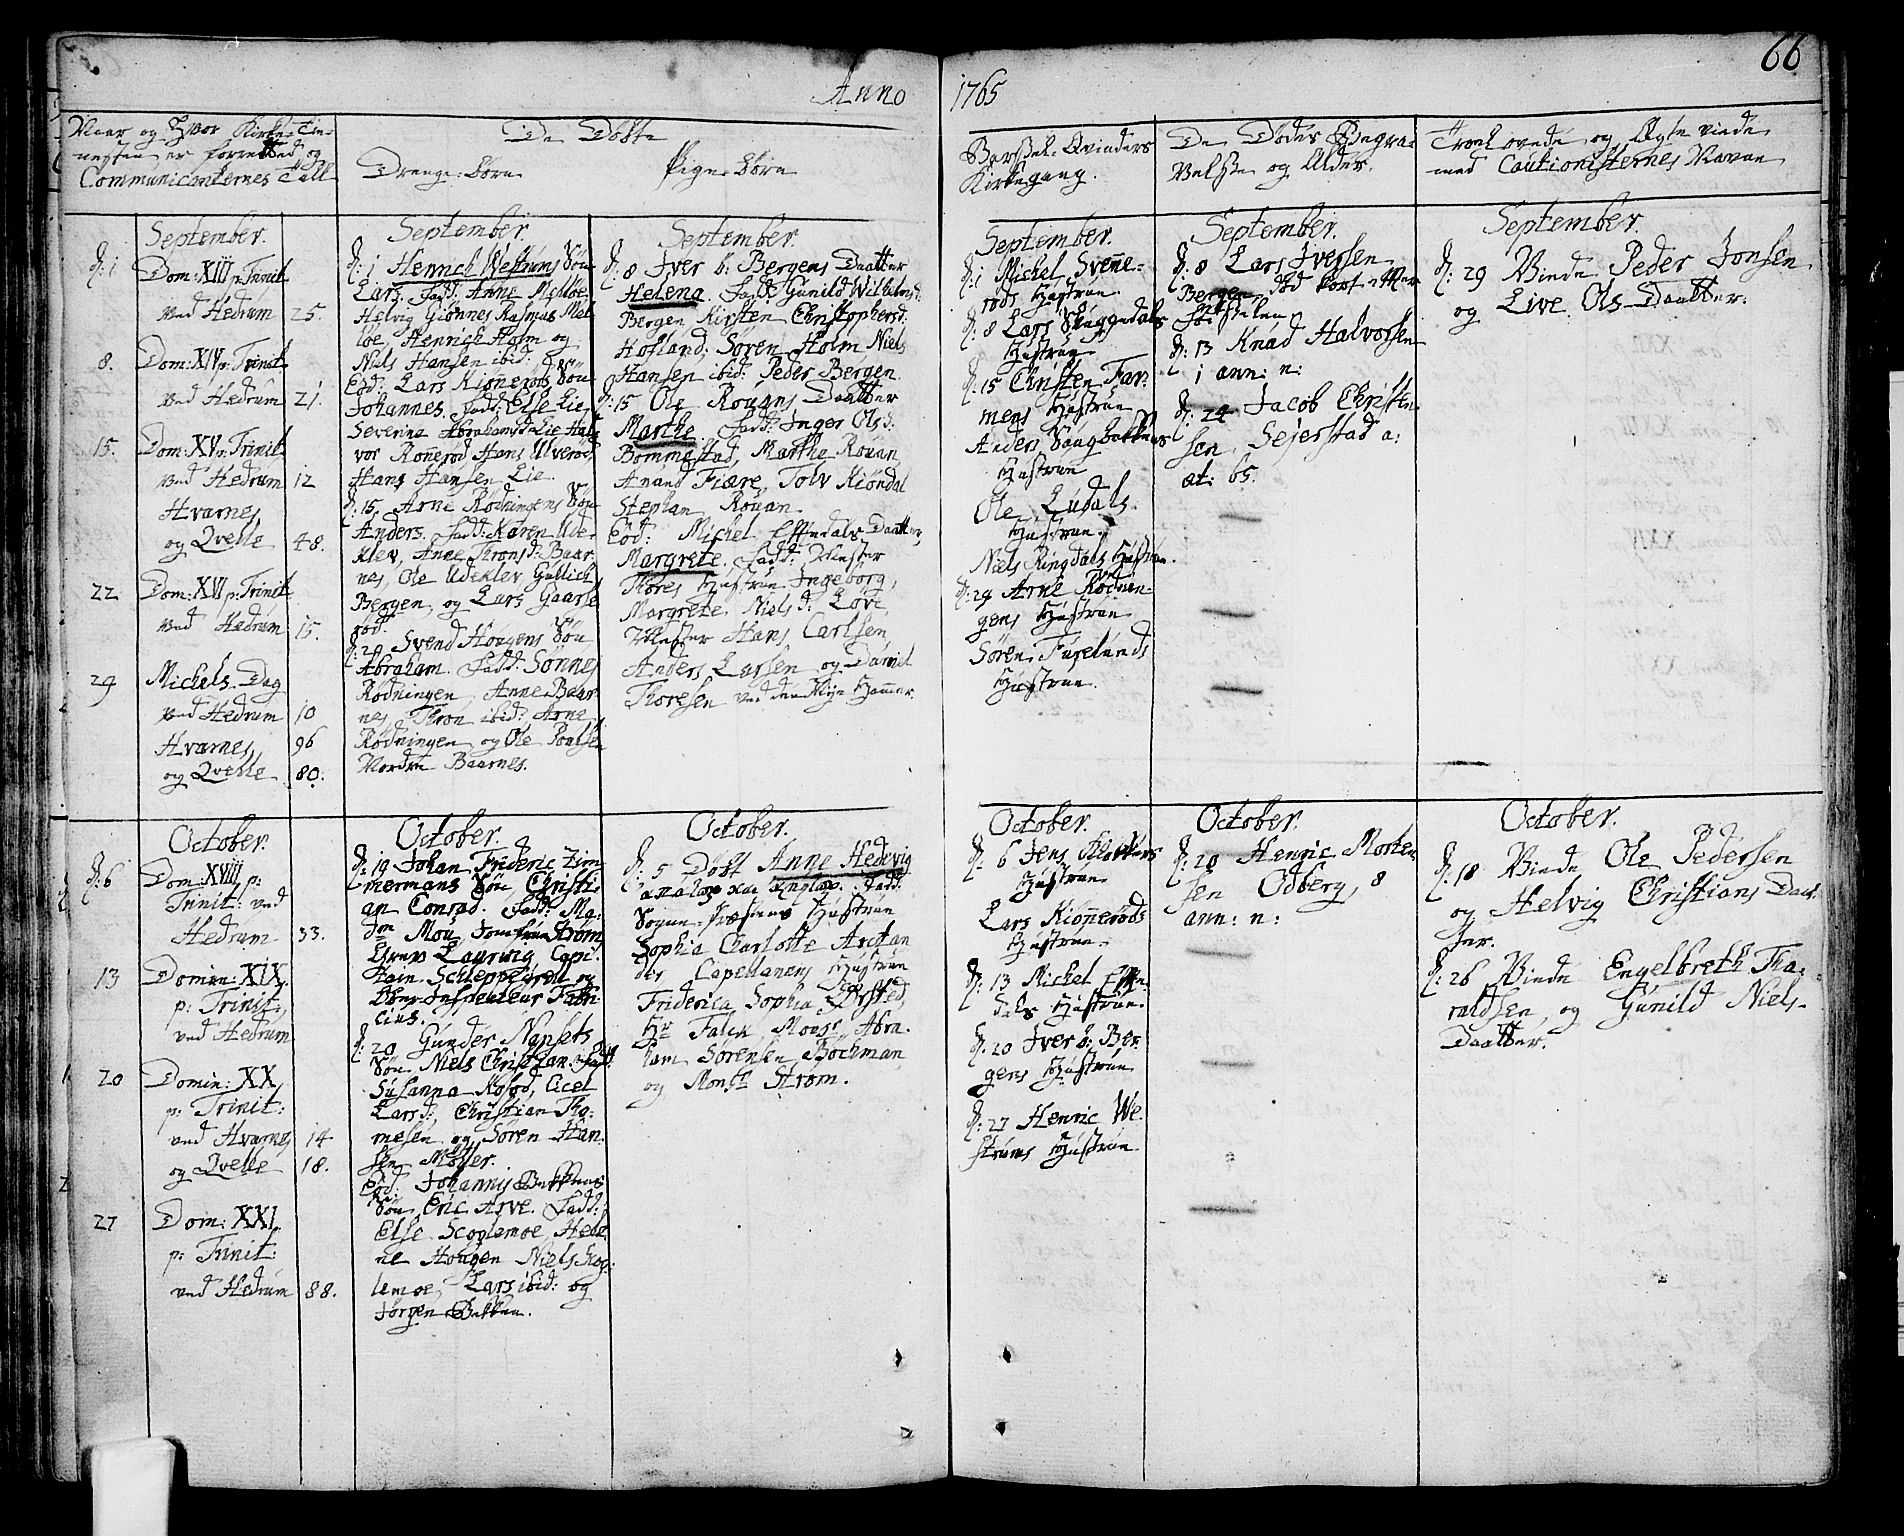 66
Anno 1765
Naar og Hvor Kirke-Tie-
nesten er forrettet og
Communicanternes Tall
De Døbte
Drenge-Børn
Pige-Børn
Barsel-Qvinders
Kirkegang.
De Dødes Begra-
velse og Alder.
Troelovede og Ægte Viede
med Cautionisternes Navne
September.
d: 1 Dom: XIII p: Trinit
ved Hedrum 25.
8. Dom: XIV p: Trinit
ved Hedrum 21.
15. Dom: XV p: Trinit
ved Hedrum 12
Hvarnes
og Qvelle 48.
22 Dom: XVI p: Trinit:
ved Hedrum 15.
29 Michels-Dag
ved Hedrum 10
Hvarnes 96
og Qvelle 80.
September.
d: 1 Henrich Westrums Søn
Lars. Fadd: Anne Mehloe
Helvig Giønnes Rasmus Mel
løe, Henrich Holm og
Niels Hansen ibid:
Eod: Lars Kiønerøds Søn
Johannes. Fadd: Else Lie
Severine Abrahamsd: Lie Hal
vor Rønerød Hans Ulverød
Hans Hansen Lie.
d: 15. Arne Rødningens Søn
Anders. Fadd: Karen Ude
klev, Anne Thronsd: Baar
nes, Ole Udeklev Gullich
Bergen, og Lars Gaarse
rød.
d: 29 Svend Hougens Søn
Abraham. Fadd: Sønnes
Rødningen, Anne Baar
nes, Thron ibid: Arne
Rødningen og Ole Poulsen
Nordre Baarnes.
September.
d: 8 Iver b: Bergens Daatter
Helena. Fadd: Gunild
Bergen Kirsten Christophersd:
Hofland: Søren Holm, Niels
Hansen ibid: Peder Bergen.
d: 15 Ole Rouans Daatter
Marthe. Fadd: Inger Olsd:
Bommestad, Marthe Rouan,
Anand Fiære, Tolv Kiøndal
Stephan Rouan.
Eod: Michel Eftedals Daatter
Margrete. Fadd: Mester
Thores Hustrue Ingeborg,
Margrete Nielsd: Love
Mester Hans Carlsen,
Anders Larsen og Daniel
Thoresen ved den Nye Hammer.
September.
d: 1 Michel Svenne-
røds Hustrue.
d: 8 Lars Skuggedals
Hustrue
d: 15 Christen Far-
mens Hustrue
Anders Saugbakkens
Hustrue
Ole Ludals
Hustrue.
Niels Ringdals Hustrue.
d: 29 Arne Rødnin-
gens Hustrue
Søren Fuglunds
Hustrue.
September.
d: 8 Lars Iversen
Bergen
d: 13 Knud Halvorsen
1 ann: n:
d: 24 Jacob Christen-
sen Sejerstad a:
æt: 65.
September.
d: 29 Viede Peder Jonsen
og Live Ols-Daatter.
October.
d: 6 Dom: XVIII p:
Trinit: ved
Hedrum 33.
13 Domin: XIX
p: Trinit:
ved Hedrum
20 Domin: XX
p: Trinit:
ved Hvarnes 14
og Qvelle 18.
27 Dom: XXI.
p: Trinit:
ved Hedrum 88.
October.
d: 19 Johan Frideric Zim
mermans Søn, Christi-
an Conrad. Fadd: Ma-
dm Mou, Jomfrue Strøm,
Grev Laurvig, Capi-
tain Schleppegrell og
Ober-Inspecteur Fabri-
cius.
d: 20 Gunder Napsets
Søn Niels Christian. Fadd:
Susanna Cicel
Larsd: Christian Tho-
mesen og Søren Han-
sen Møller.
Eod: Johannis Bekkens
Søn, Eric Arve. Fadd:
Else Scoglemoe Hele-
ne Hougen Niels Skog-
lemoe, Lars ibid: og
Jørgen Bekken.
October.
d: 5 Døbt Anne Hedevig
Fadd:
Sogne-Præstens Hustrue
Sophia Charlotte Arctan
der Capellanens Hustrue
Friderica Sophia Ørsted,
Hr Falck, Monsr Abra-
ham Sørensen Bøchman
og Monsr Strøm.
October.
d: 6 Jens Klokkers
Hustrue
Lars Kiønnerøds
Hustrue.
d: 13 Michel Efte-
dals Hustrue.
d: 20 Iver ø: Ber-
gens Hustrue
d: 27 Henric We-
strums Hustrue
October.
d: 20 Henric Morten-
sen Odberg, 8
ann: n:
October.
d: 18 Viede Ole Pedersen
og Helvig Christians Daat-
ter.
d: 26 Viede Engelbreth Tha-
raldsen, og Gunild Niels-
Daatter.